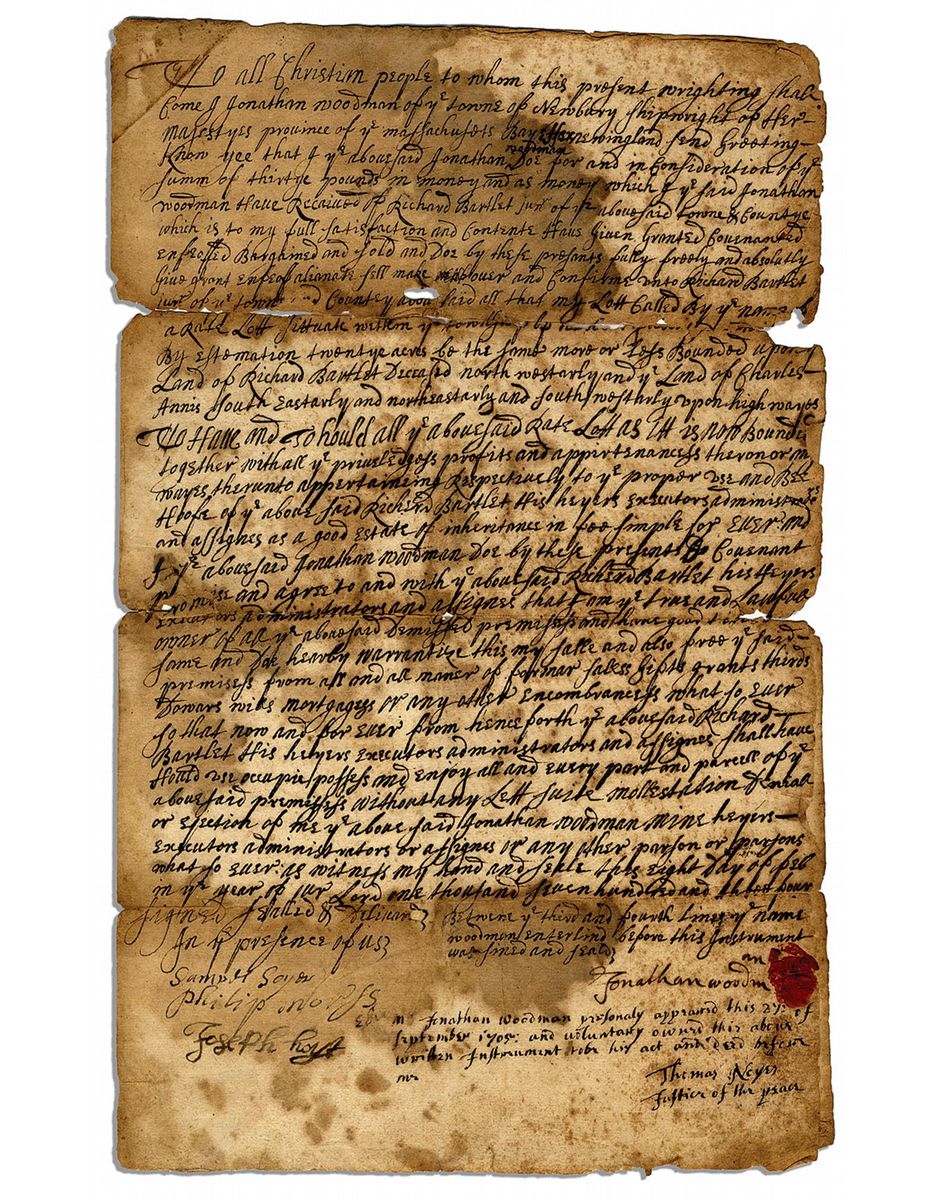 To all Christian people to whom this present wrighting shall
Come I Jonathan woodman of yͤ towne of Newbury shipwright of Her–
majestyes province of yͤ massachusets Bay in new ingland send Greeting–
woodman
Know yee that I yͤ abovesaid Jonathan Doe for and in Consideration of yͤ
summ of thirtye pounds in money and as money which I yͤ said Jonathan
woodman Have Received of Richard Bartlet junʳ of yͤ abovesaid towne & Countye
which is to my full satisfaction and Contente Have Given Granted Covenanted
enfeoffed Barghined and sold and Doe by these presents fully freely and absolutly
Give grant enfeof alianate sell make over and Confirme unto Richard Bartlet
junʳ of yͤ towne and Countey above said all that my Lott Called By yͤ name
a Rate Lott sittuate within yͤ
By estemation twentye acres be the same more or less Bounded upon
Land of Richard Bartlet Deceased north westarly and yͤ Land of Charles
Annis south Eastarly and northeasterly and southwestherly upon high wayes
To Have and To hould all yͤ abovesaid Rate Lott as itt is now Bounded
together with all yͤ priveledgess profits and appertenancess theron or in
wayes therunto appertaineing Respectively to yͤ proper use and Bee
Hoofe of yͤ above said Richard Bartlet His heyers executors administrators
and assignes as a good estate of inheritance in fee simple for ever and
I yͤ abovesaid Jonathan Woodman Doe by these presents Covenant
promise and agree to and with yͤ abovesaid Richard Bartlet his Heyers
executors administrators and assignes that I am yͤ true and Lawfull
owner of all yͤ abovesaid Demissed premisess and have good
same and Doe hearby warrantize this my salle and also free yͤ said–
premisess from all and all maner of formar saless gifts grants thirds
Dowars wills mortgagess or any other encombrancess what so ever
so that now and for ever from henceforth yͤ abovesaid Richard–
Bartlet His heyers executors administrators and assignes shall have
Hould use occupie possess and enjoy all and every part and parcell of yͤ
abovesaid premisess without any Lett suite mollestation deneall
or ejection of me yͤ above said Jonathan woodman mine heyers–
executors administrators or assignes or any other parson or parsons
what so ever: as witness my hand and seale this eight Day of feb
in yͤ year of our Lord one thousand seven hundred and four
signed sealled & Delivard
In yͤ presence of us
Samuel Soyer
Philip
Joseph hoyt
Betwene yͤ third and fourth lines yͤ name
woodman enterlind before this Instrument
was sined and seald
Jonathan woodman
Mʳ Jonathan Woodman presonaly appeared this 27: of
september 1705: and voluntary owned this above
written Instrument to be his act and deed before
me
Thomas Noyes
Justice of the peace